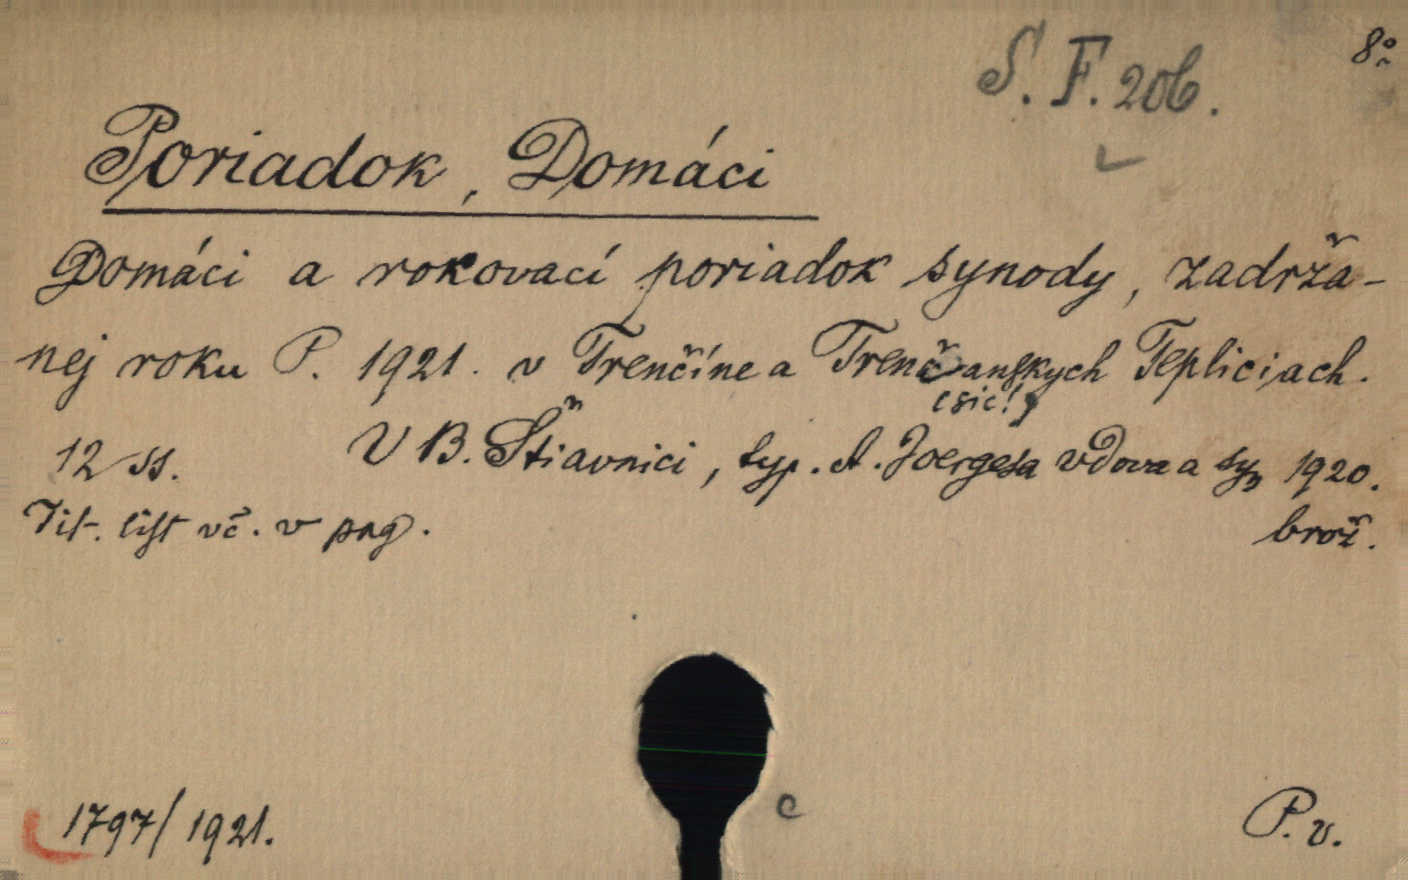 S. F. 206.
8°
Poriadok, Domáci
Domáci a rokovací poriadok synody, zadrža-
nej roku P. 1921. v Trenčíne a Trenčanskych Tepliciach.
(sic!)
12 ss. V B. Štiavnici, typ. A. Joergesa vdova a syn 1920.
Tit. list vč. v pag. brož.
1797/1921. c P. v.